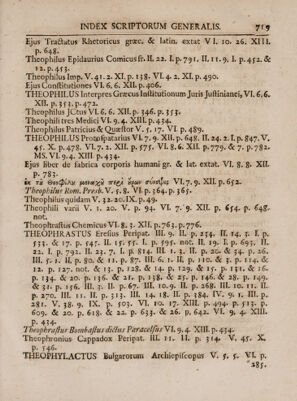 INDEX SCRIPTORUM GENERALIS. 719
Ejus Tractatus Rhetoricus græc. & latin. extat VI. 10. 26. XIII.
p. 648.
Theophilus Epidaurius Comicus fr. II. 22. I. p. 791. II. 11. 9. I. p. 452. &
12. p. 453.
Theophilus Imp. V. 41. 2. XI. p. 138. VI. 4. 2. XI. p. 490.
Ejus Constitutiones VI. 6. 6. XII. p. 406.
THEOPHILUS Interpres Græcus Institutionum Juris Justinianei, VI. 6. 6.
XII. p. 353. p. 472.
Theophilus JCtus VI. 6. 6. XII. p. 346. p. 353.
Theophili tres Medici VI. 9. 4. XIII. p. 434.
Theophilus Patricius & Quæstor V. 5. 17. VI. p. 489.
THEOPHILUS Protospatarius VI. 7. 9. XII. p. 648. II. 24. 2. I. p. 847. V.
45. X. p. 478. VI. 7. 2. XII. p. 575. VI. 8. 6. XII. p. 779. & 7. p. 782.
MS. VI. 9. 4. XIII. p. 434.
Ejus liber de fabrica corporis humani gr. & lat. extat. VI. 8. 8. XII.
p. 783.
VI. 7. 9. XII. p. 652.
Theophilus Rom. Presb. V. 5. 8. VI. p. 364. p. 365.
Theophilus quidam V. 32. 20. IX. p. 49.
Theophili varii V. 1. 20. V. p. 94. VI. 7. 9. XII. p. 654. p. 648.
not.
Theophrastus Chemicus VI. 8. 3. XII. p. 762. p. 776.
THEOPHRASTUS Eresius Peripat. III. 9. II. p. 234. II. 14. 3. I. p.
533. & 17. p. 545. II. 15. 55. I. p. 595. not. II. 19. I. p. 693. II.
22. I. p. 792. II. 23. 7. I. p. 814. III. 1. 3. II. p. 20. & 34. p. 26.
III. 5. 1. II. p. 80. & 11. p. 87. III. 6. 1. II. p. 110. & 3. p. 114. &
12. p. 127. not. & 13. p. 128. & 14. p. 129. & 15. p. 131. & 16.
p. 134. & 20. p. 136. & 21. p. 138. & 25. p. 146. & 28. p. 149.
& 31. p. 156. III. 3. II. p. 67. III. 10. 9. II. p. 268. III. 10. 11. II.
p. 270. III. 11. II. p. 313. III. 14. 18. II. p. 384. IV. 9. 1. III. p.
281. V. 38. 9. IX. p. 503. VI. 10. 17. XIII. p. 494. p. 513. p.
609. & 20. p. 618. & 22. p. 633. & 26. p. 642. VI. 9. 4. XIII.
p. 434.
Theophrastus Bombastus dictus Paracelsus VI. 9. 4. XIII. p. 434.
Theophronius Cappadox Peripat. III. 11. II. p. 314. V. 45. X.
p. 546.
THEOPHYLACTUS Bulgarorum Archiepiscopus V. 5. 5. VI. p.
285.